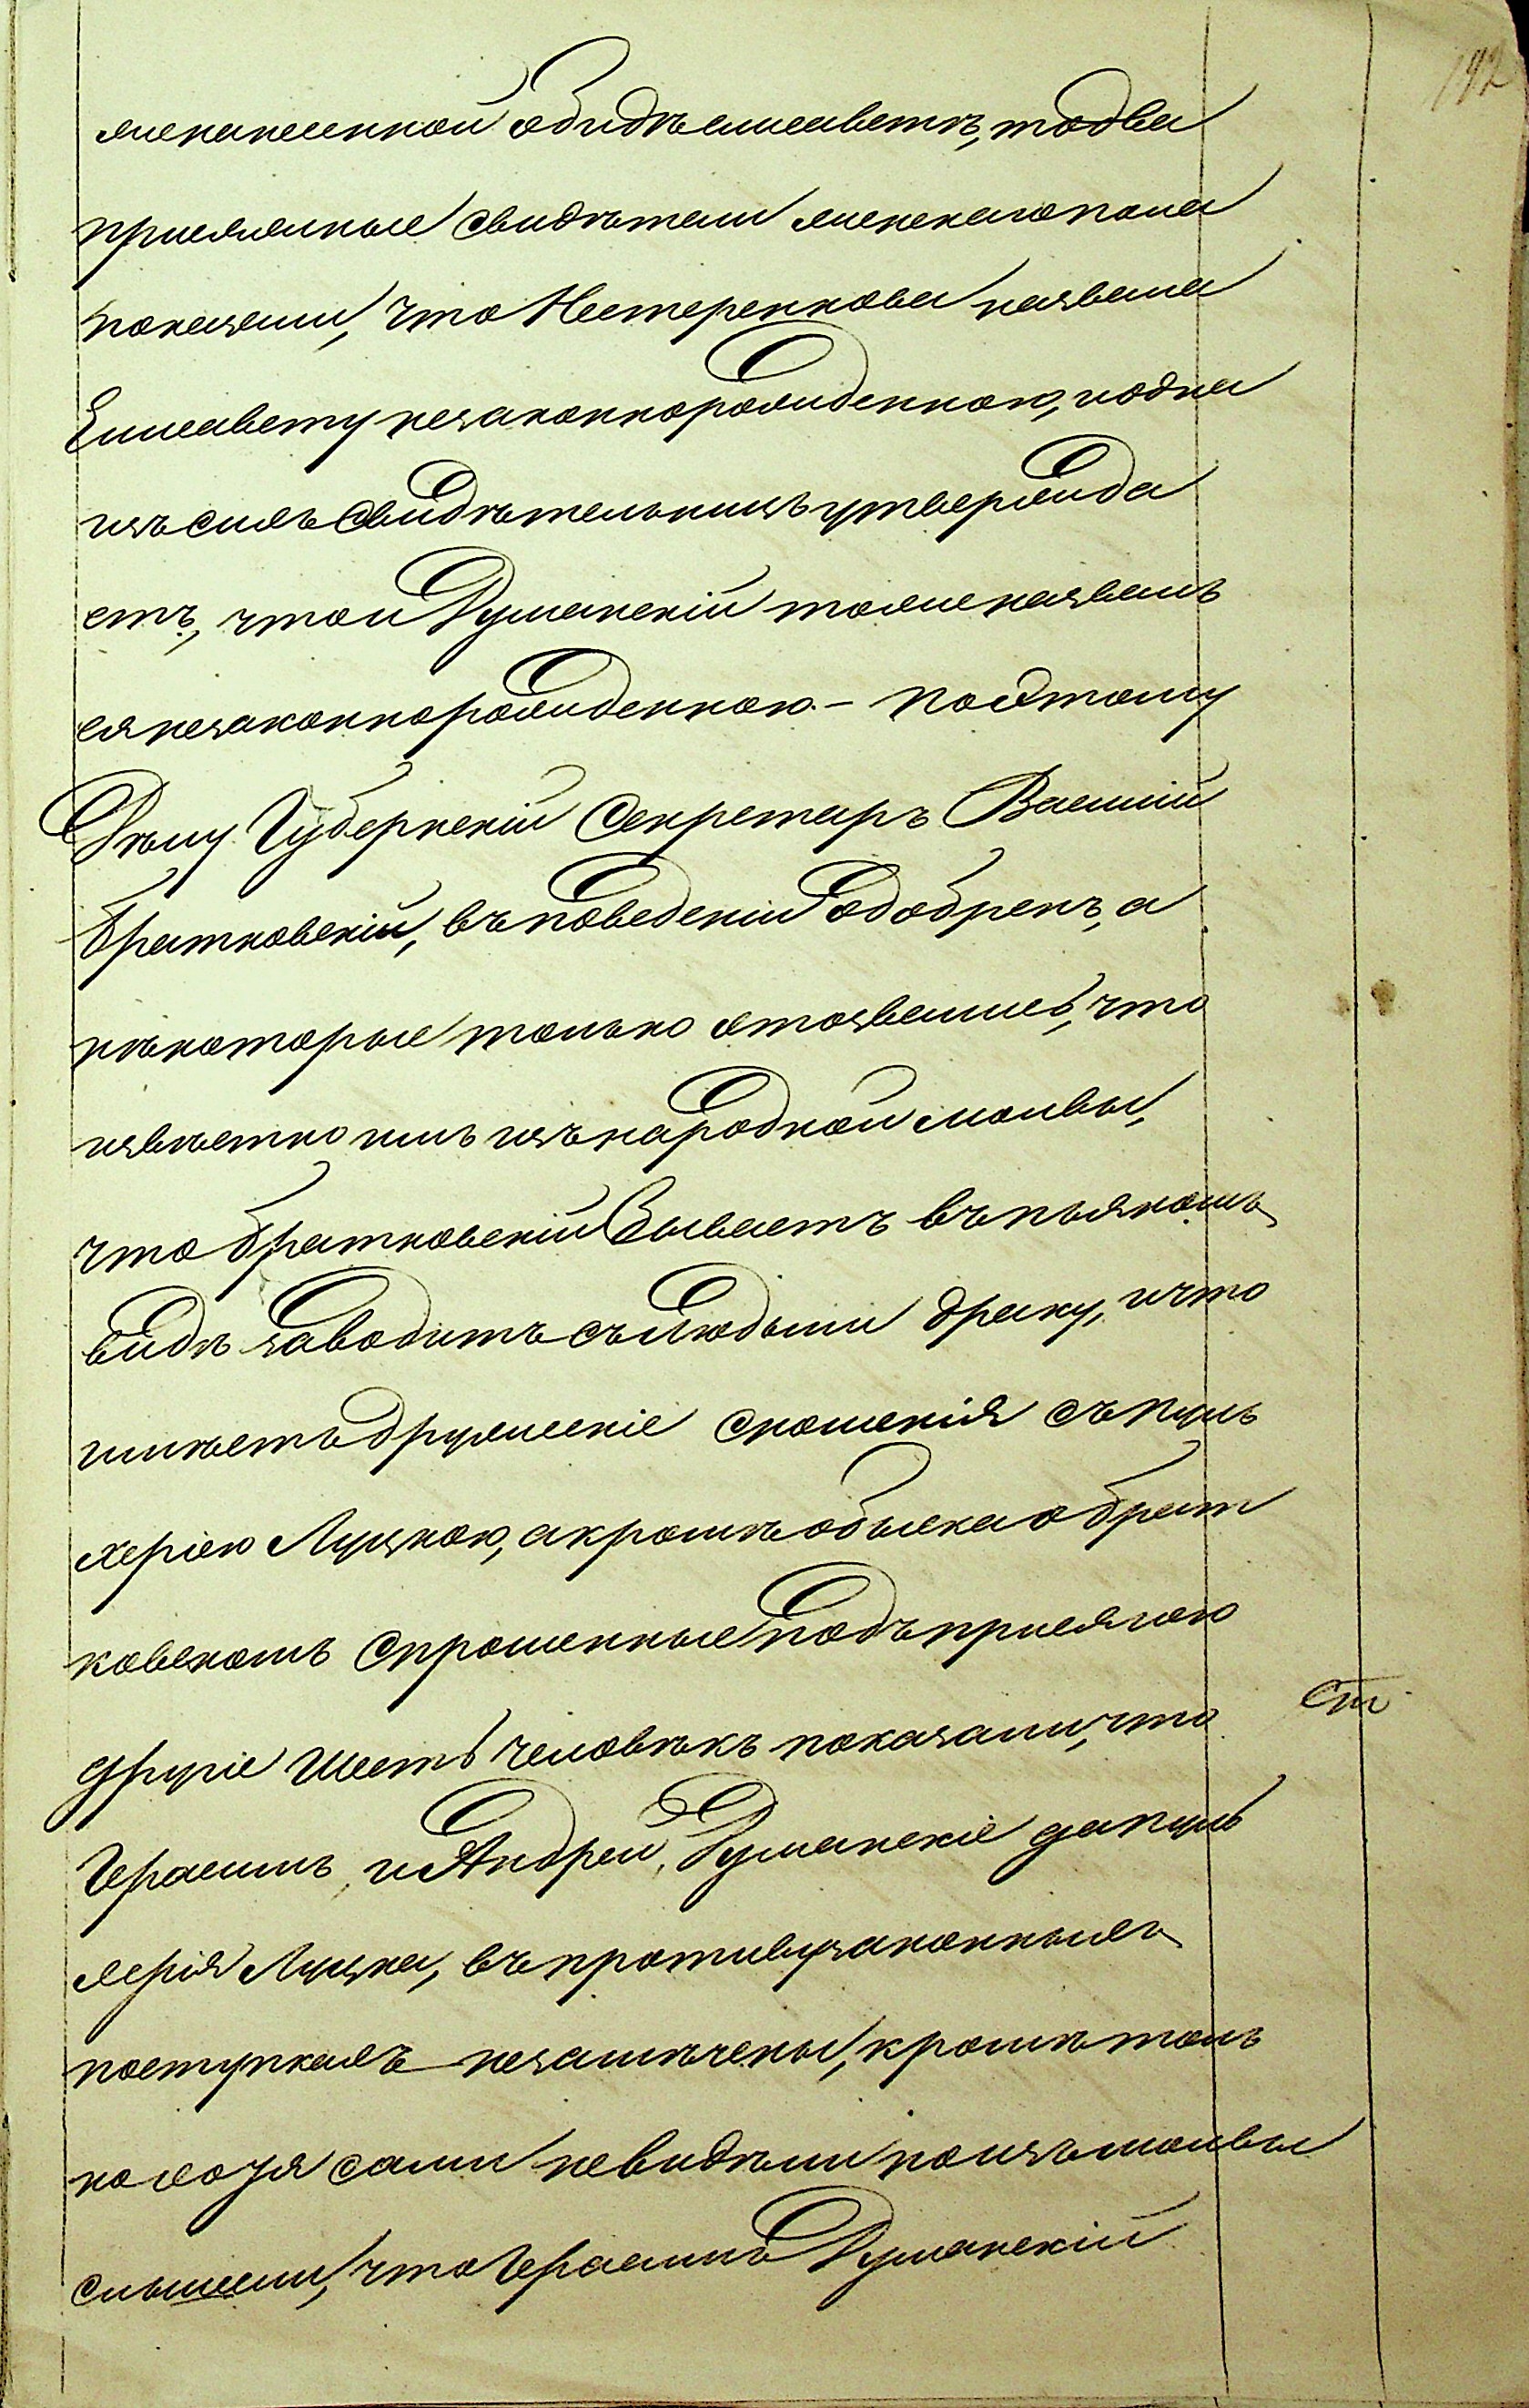 142
женанесенной обидѣ Елисаветѣ, то два
присяжные свидѣтели женскаго пола
показали, что Нестеренкова назвала
Елисавету незаконнорожденною, и одна
изъ сихъ свидѣтельницъ утвержда
етъ, что и Думанскій тоже назвалъ
ея незаконнорожденною. – По этому
Дѣлу Губернскій Секретарь Василій
Братковскій, въ поведеніи одобренъ, а
нѣкоторые только отозвались, что
извѣстно имъ изъ народной молвы,
что Братковскій бываетъ въ пьяномъ
видѣ заводитъ съ людьми драку, и что
имѣетъ дружескіе сношенія съ пуль
херіею Луцкою, а кромѣ обыска о Брат
ковскомъ спрошенные подъ присягою
другіе шесть человѣкъ показали, что
Герасимъ, и Андрей, Думанскіе да пуль
херія Луцка, въ противузаконныхъ
поступкахъ незамѣчены, кромѣ толь
ко хотя сами невидѣли но изъ молвы
слышали, что Герасимъ Думанскій